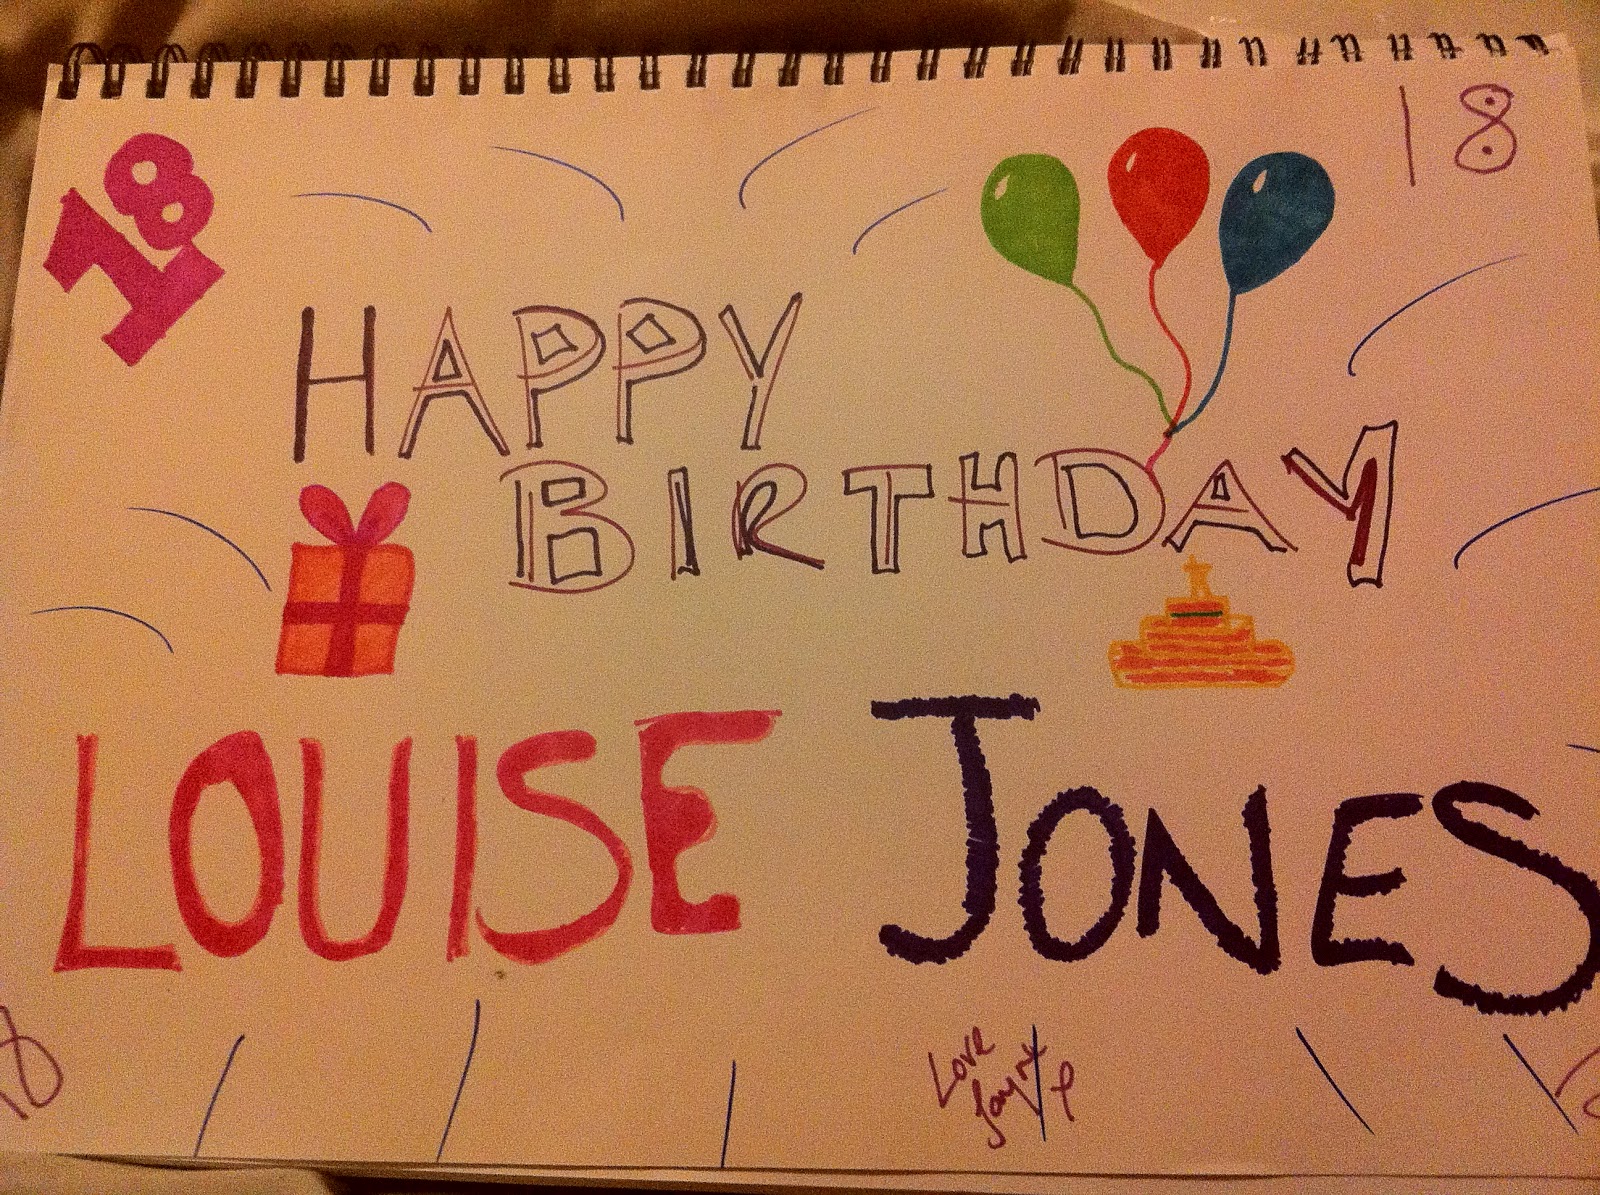 18
18
HAPPY
BIRTHDAY
LOUISE JONES
18
Love